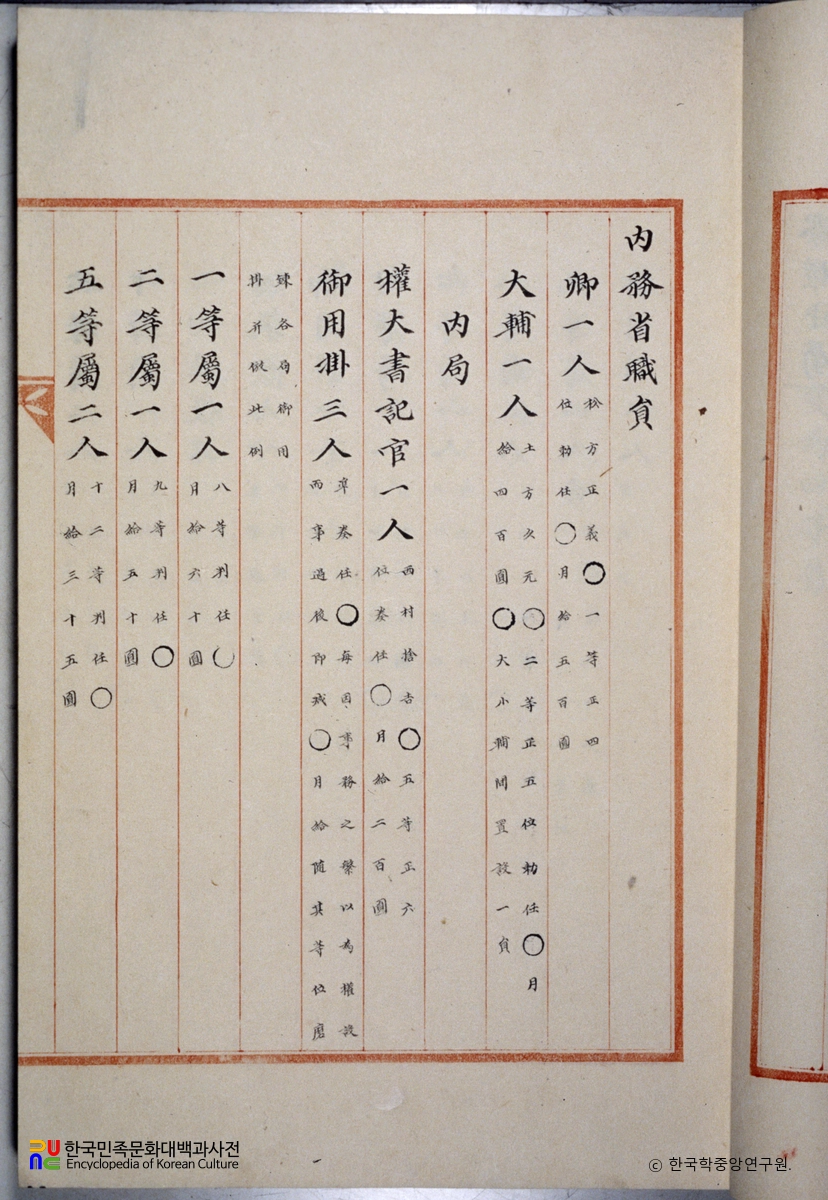 內務省職員
卿一人 松方正義○一等正四
位勅任○月給五百圓
大輔一人 土方久元○二等正五位勅任○月
給四百圓○大小輔間置設一員
內局
權大書記官一人 西村捨吉○五等正六
位奏任○月給二百圓
御用掛三人 準奏任○每因事務之繁以爲權設
而事過後卽減○月給隨其等位磨
鍊各局御用
掛幷倣此例
一等屬一人 八等判任○
月給六十圓
二等屬一人 九等判任○
月給五十圓
五等屬二人 十二等判任○
月給三十五圓
한국민족문화대백과사전
Encyclopedia of Korean Culture
© 한국학중앙연구원.